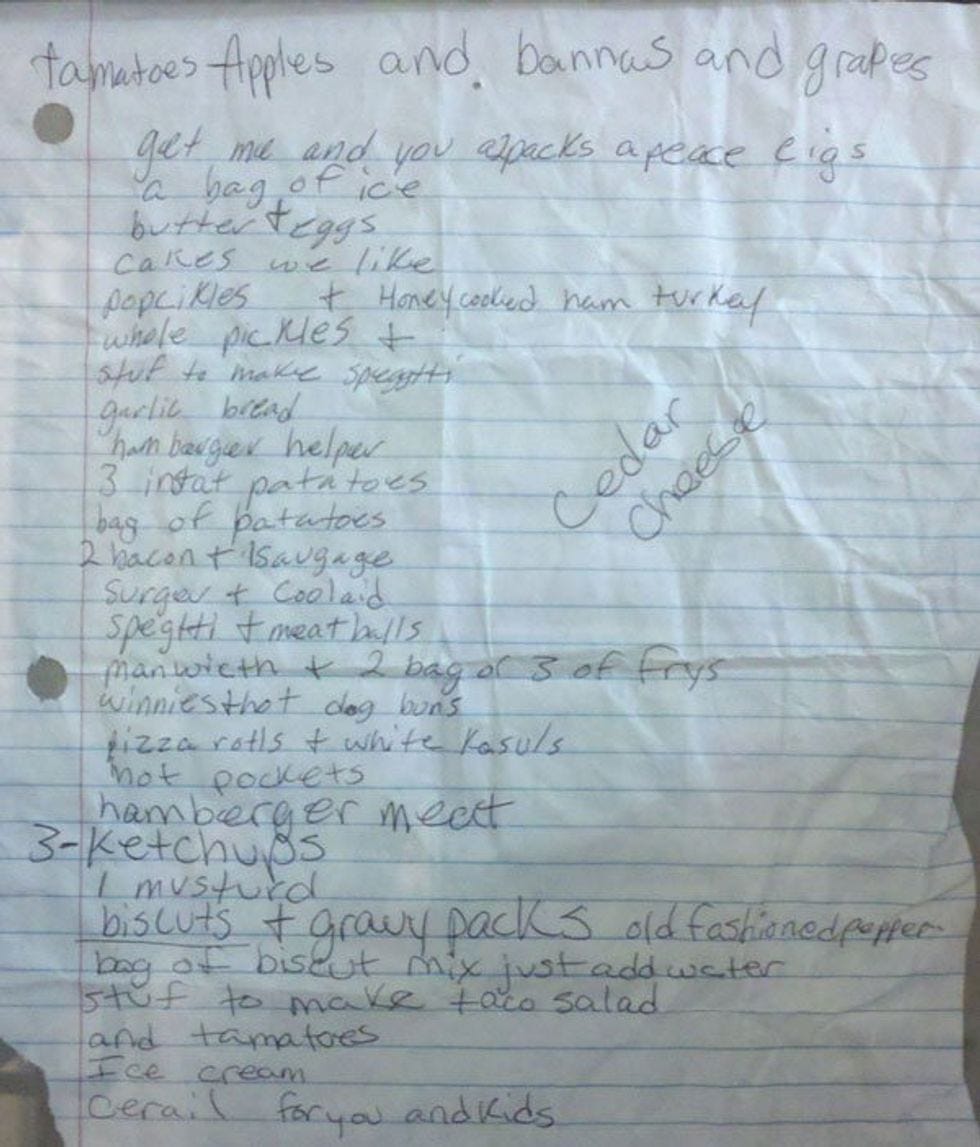 tamatoes Apples and bannas and grapes
get me and you a 2packs a peace cigs
a bag of ice
butter + eggs
cakes we like
popcikles + Honey cooked ham turkey
whole pickles +
stuf to make spegtti
garlic bread
hamberger helper
3 instat patatoes
bag of patatoes
Cedar
cheese
2 bacon + 1 saugage
surger + Coolaid
spegtti + meat balls
manwieth + 2 bag or 3 of frys
winnies + hot dog buns
pizza rolls + white kasuls
hot pockets
hamberger meat
3-Ketchups
1 musturd
biscuts + gravy packs old fashioned pepper
bag of biscut mix just add water
stuf to make taco salad
and tamatoes
Ice cream
cerail for you and kids